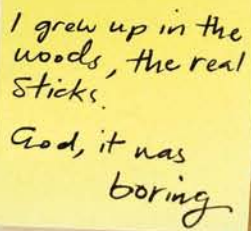 I grew up in the
woods, the real
Sticks.
God, it was
boring